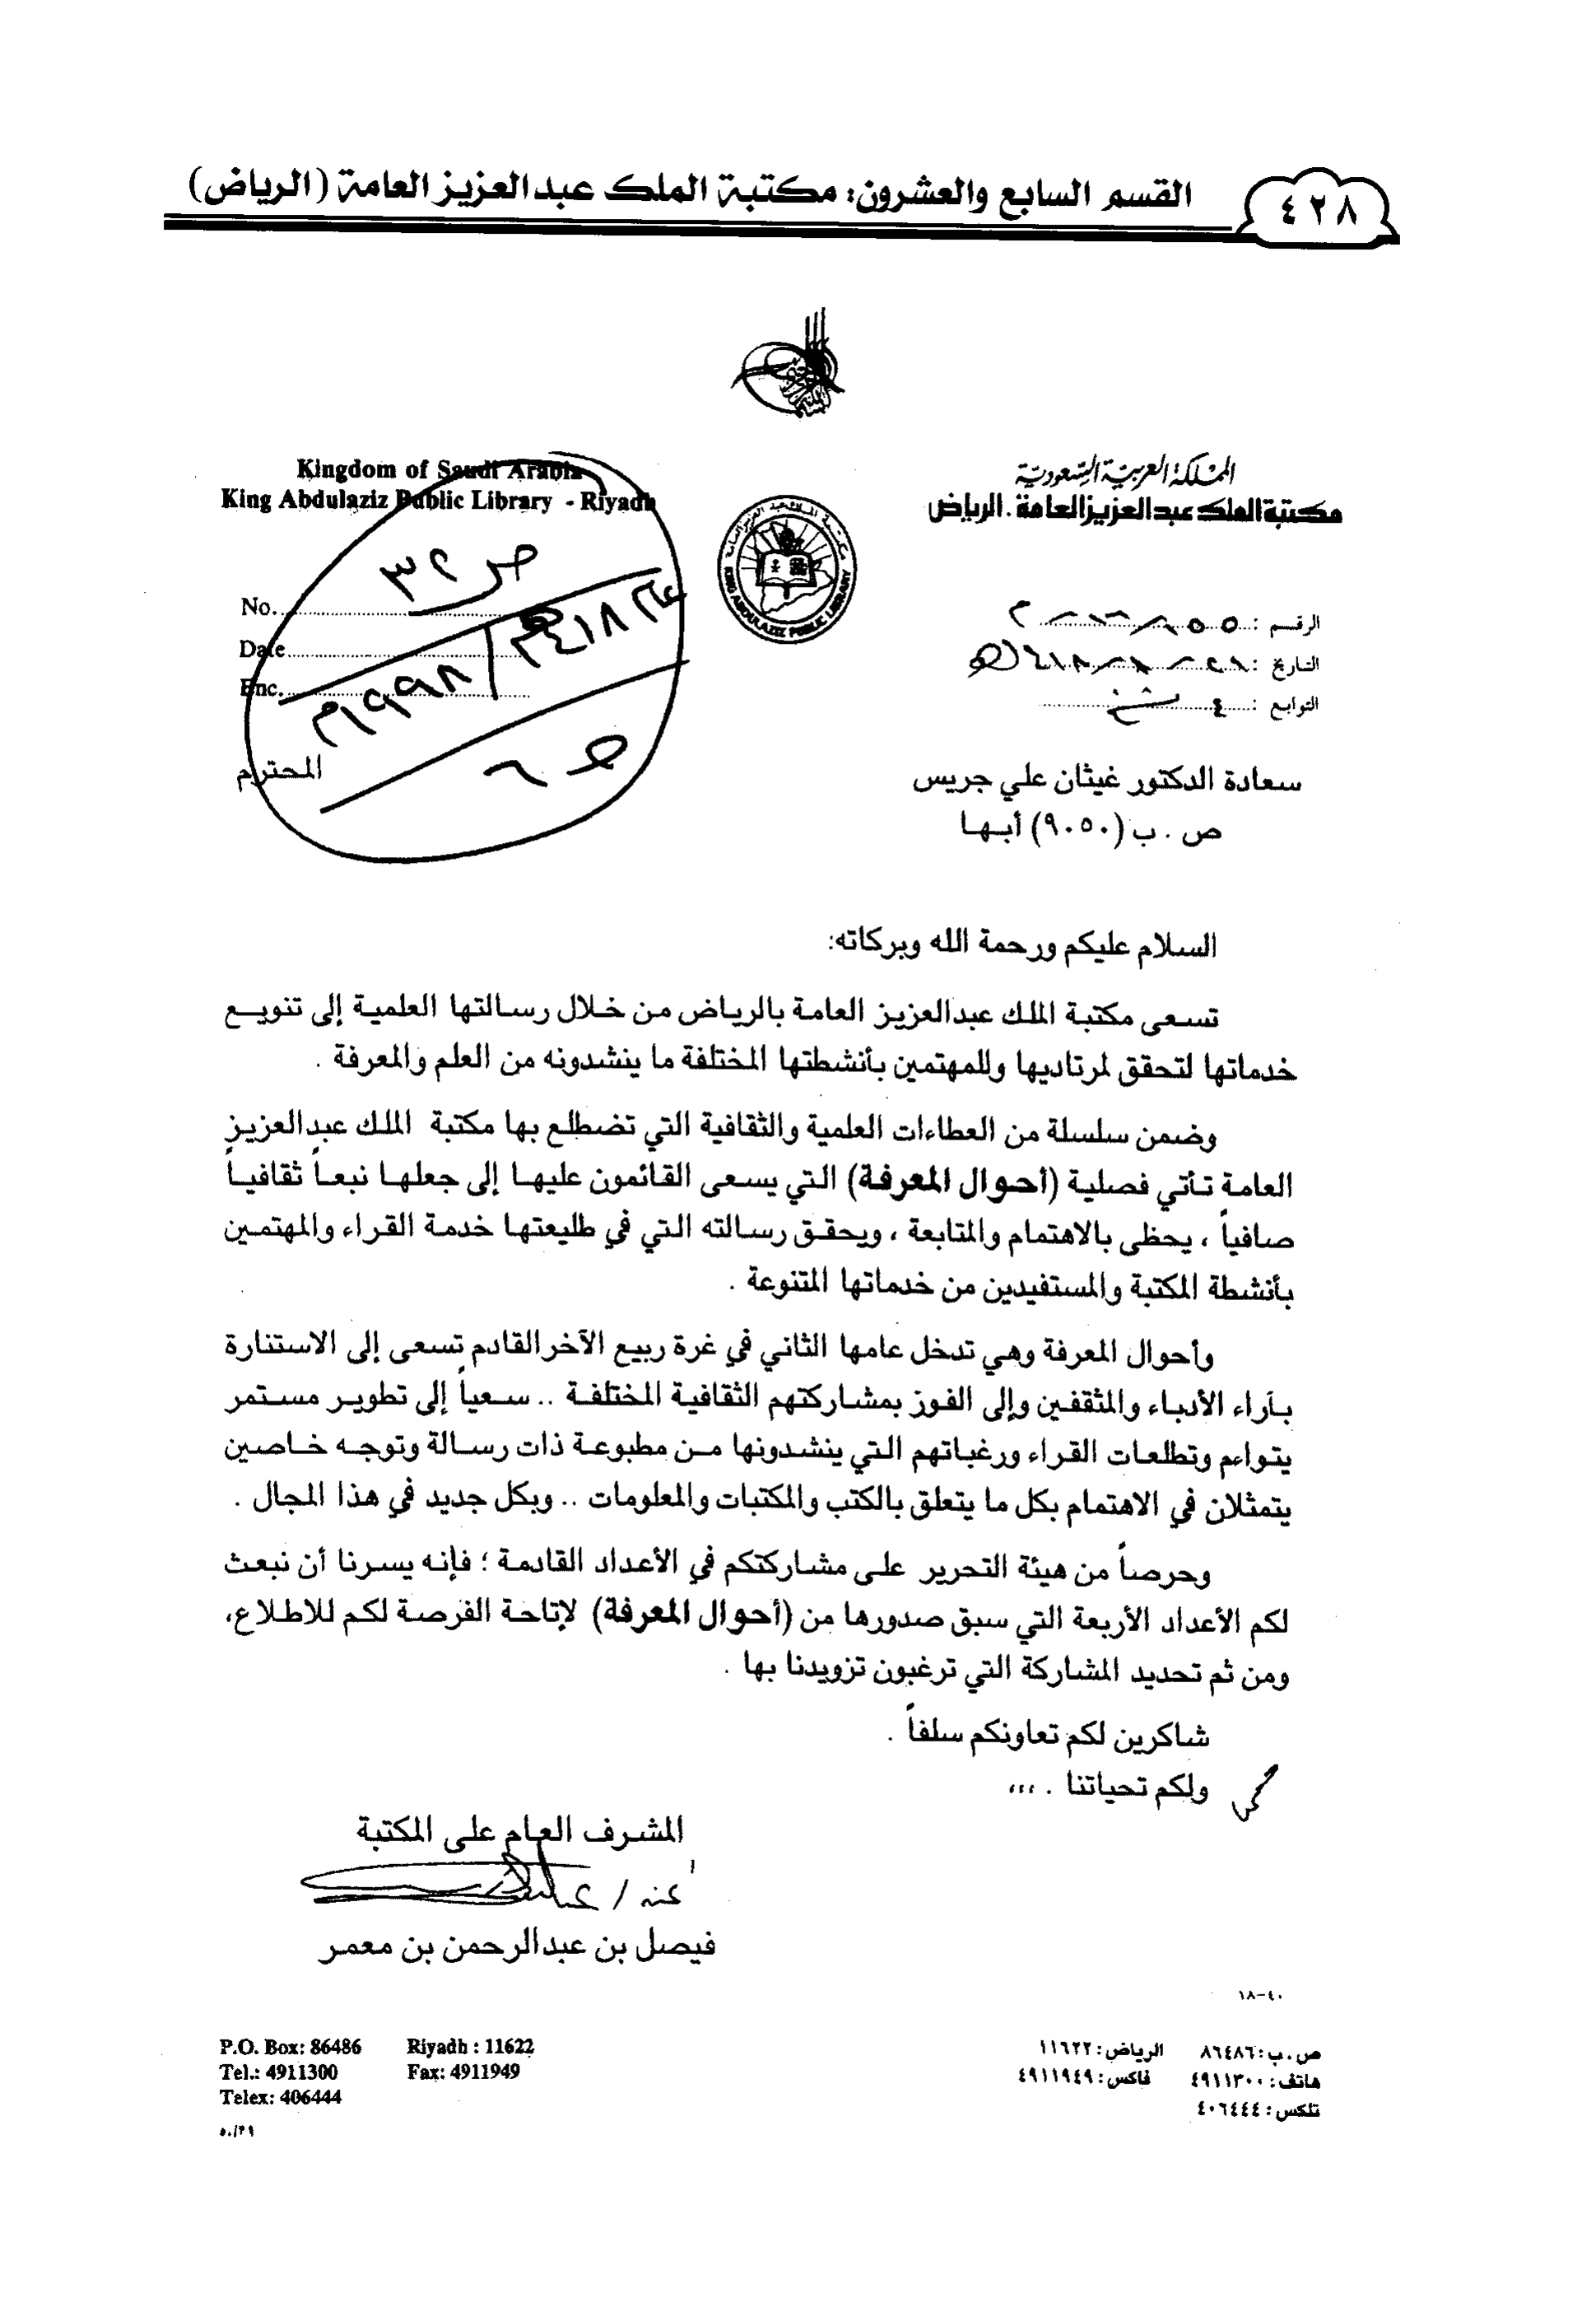 ٤٢٨
القسم السابع والعشرون: مكتبة الملك عبدالعزيز العامة (الرياض)
المملكة العربية السعودية
مكتبة الملك عبدالعزيز العامة . الرياض
Kingdom of Saudi Arabia
King Abdulaziz Public Library - Riyadh
KING ABDULAZIZ PUBLIC LIBRARY
No.
Date
Enc.
الرقم :
التاريخ :
التوابع : ٤
سعادة الدكتور غيثان علي جريس
المحترم
ص . ب (٩٠٥٠) أبها
السلام عليكم ورحمة الله وبركاته:
تسعى مكتبة الملك عبدالعزيز العامة بالرياض من خلال رسالتها العلمية إلى تنويع
خدماتها لتحقق لمرتاديها وللمهتمين بأنشطتها المختلفة ما ينشدونه من العلم والمعرفة .
وضمن سلسلة من العطاءات العلمية والثقافية التي تضطلع بها مكتبة الملك عبدالعزيز
العامة تأتي فصلية (أحوال المعرفة) التي يسعى القائمون عليها إلى جعلها نبعاً ثقافياً
صافياً ، يحظى بالاهتمام والمتابعة ، ويحقق رسالته التي في طليعتها خدمة القراء والمهتمين
بأنشطة المكتبة والمستفيدين من خدماتها المتنوعة .
وأحوال المعرفة وهي تدخل عامها الثاني في غرة ربيع الآخر القادم تسعى إلى الاستنارة
بآراء الأدباء والمثقفين وإلى الفوز بمشاركتهم الثقافية المختلفة .. سعياً إلى تطوير مستمر
يتواءم وتطلعات القراء ورغباتهم التي ينشدونها من مطبوعة ذات رسالة وتوجه خاصين
يتمثلان في الاهتمام بكل ما يتعلق بالكتب والمكتبات والمعلومات .. وبكل جديد في هذا المجال .
وحرصاً من هيئة التحرير على مشاركتكم في الأعداد القادمة ؛ فإنه يسرنا أن نبعث
لكم الأعداد الأربعة التي سبق صدورها من (أحوال المعرفة) لإتاحة الفرصة لكم للاطلاع،
ومن ثم تحديد المشاركة التي ترغبون تزويدنا بها .
شاكرين لكم تعاونكم سلفاً .
ولكم تحياتنا . ،،،
المشرف العام على المكتبة
عنه /
فيصل بن عبدالرحمن بن معمر
١٨-٤٠
ص . ب: ٨٦٤٨٦ الرياض: ١١٦٢٢
هاتف: ٤٩١١٣٠٠ فاكس: ٤٩١١٩٤٩
تلكس: ٤٠٦٤٤٤
P.O. Box: 86486 Riyadh : 11622
Tel.: 4911300 Fax: 4911949
Telex: 406444
٥٠/٣٩